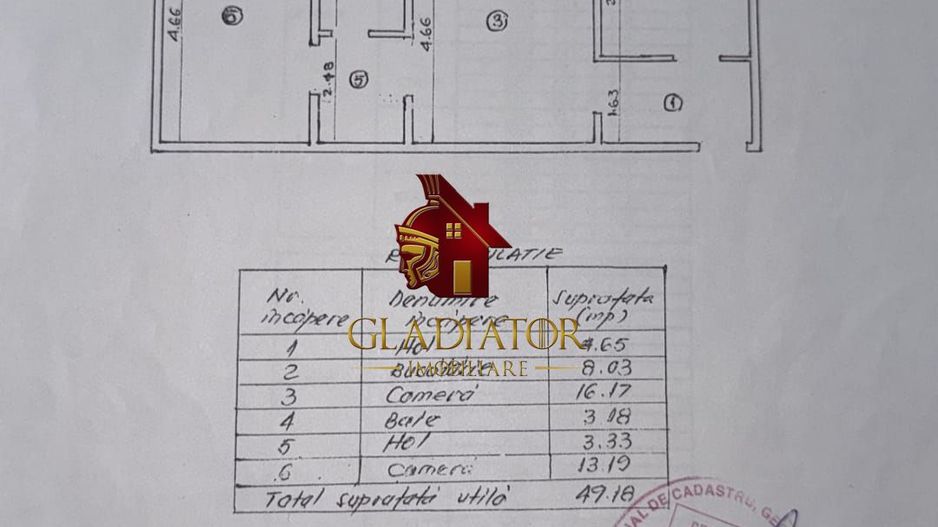 4.66
6
2.48
5
4.66
3
1.63
1
Nr. încăpere
Denumire încăpere
Suprafața (mp)
1 Hol 4.65
2 Bucătărie 8.03
3 Cameră 16.17
4 Baie 3.18
5 Hol 3.33
6 Cameră 13.19
Total suprafață utilă 49.18
GLADIATOR
IMOBILIARE
DE CADASTRU,